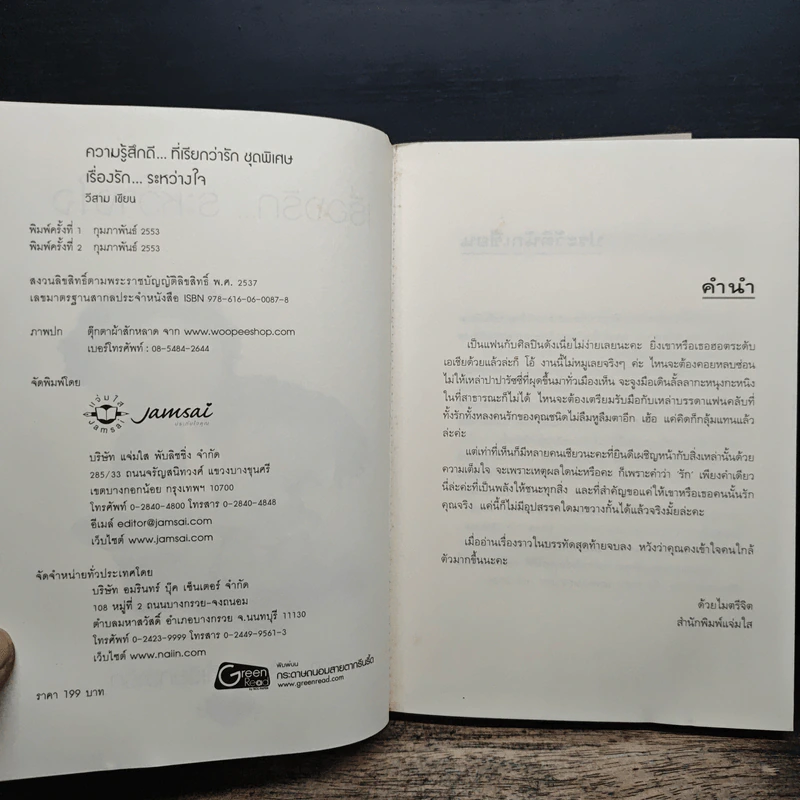 ความรู้สึกดี... ที่เรียกว่ารัก ชุดพิเศษ
เรื่องรัก... ระหว่างใจ
วีสาม เขียน
พิมพ์ครั้งที่ 1 กุมภาพันธ์ 2553
พิมพ์ครั้งที่ 2 กุมภาพันธ์ 2553
สงวนลิขสิทธิ์ตามพระราชบัญญัติลิขสิทธิ์ พ.ศ. 2537
เลขมาตรฐานสากลประจำหนังสือ ISBN 978-616-06-0087-8
ภาพปก ตุ๊กตาผ้าสักหลาด จาก www.woopeeshop.com
เบอร์โทรศัพท์ : 08-5484-2644
จัดพิมพ์โดย
แจ่มใส
JAMSAI
Jamsai
บริษัท แจ่มใส พับลิชชิ่ง จำกัด
285/33 ถนนจรัญสนิทวงศ์ แขวงบางขุนศรี
เขตบางกอกน้อย กรุงเทพฯ 10700
โทรศัพท์ 0-2840-4800 โทรสาร 0-2840-4848
อีเมล์ editor@jamsai.com
เว็บไซต์ www.jamsai.com
จัดจำหน่ายทั่วประเทศโดย
บริษัท อมรินทร์ บุ๊ค เซ็นเตอร์ จำกัด
108 หมู่ที่ 2 ถนนบางกรวย-จงถนอม
ตำบลมหาสวัสดิ์ อำเภอบางกรวย จ.นนทบุรี 11130
โทรศัพท์ 0-2423-9999 โทรสาร 0-2449-9561-3
เว็บไซต์ www.naiin.com
Green Read
พิมพ์บน
กระดาษถนอมสายตากรีนรี้ด
www.greenread.com
ราคา 199 บาท
คำนำ
เป็นแฟนกับศิลปินดังเนี่ยไม่ง่ายเลยนะคะ ยิ่งเขาหรือเธอฮอตระดับ
เอเชียด้วยแล้วล่ะก็ โอ้ งานนี้ไม่หมูเลยจริงๆ ค่ะ ไหนจะต้องคอยหลบซ่อน
ไม่ให้เหล่าปาปารัซซี่ที่ผุดขึ้นมาทั่วเมืองเห็น จะจูงมือเดินลั้ลลากะหนุงกะหนิง
ในที่สาธารณะก็ไม่ได้ ไหนจะต้องเตรียมรับมือกับเหล่าบรรดาแฟนคลับที่
ทั้งรักทั้งหลงคนรักของคุณชนิดไม่ลืมหูลืมตาอีก เฮ้อ แค่คิดก็กลุ้มแทนแล้ว
ล่ะค่ะ
แต่เท่าที่เห็นก็มีหลายคนเชียวนะคะที่ยินดีเผชิญหน้ากับสิ่งเหล่านั้นด้วย
ความเต็มใจ จะเพราะเหตุผลใดน่ะหรือคะ ก็เพราะคำว่า ‘รัก’ เพียงคำเดียว
นี่ล่ะค่ะที่เป็นพลังให้ชนะทุกสิ่ง และที่สำคัญขอแค่ให้เขาหรือเธอคนนั้นรัก
คุณจริง แค่นี้ก็ไม่มีอุปสรรคใดมาขวางกั้นได้แล้วจริงมั้ยล่ะคะ
เมื่ออ่านเรื่องราวในบรรทัดสุดท้ายจบลง หวังว่าคุณคงเข้าใจคนใกล้
ตัวมากขึ้นนะคะ
ด้วยไมตรีจิต
สำนักพิมพ์แจ่มใส